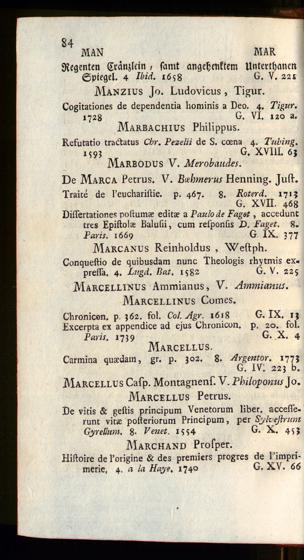 84
MAN MAR
Regenten Cränzlein, samt angehenktem Unterthanen
Spiegel. 4 Ibid. 1658 G. V. 221
MANZIUS Jo. Ludovicus, Tigur.
Cogitationes de dependentia hominis a Deo. 4. Tigur.
1728 G. VI. 120 a.
MARBACHIUS Philippus.
Refutatio tractatus Chr. Pezelii de S. cœna 4. Tubing.
1593 G. XVIII. 63
MARBODUS V. Merobaudes.
De MARCA Petrus. V. Bœhmerus Henning. Just.
Traité de l'eucharistie. p. 467. 8. Roterd. 1713
G. XVII. 468
Dissertationes postumæ editæ a Paulo de Faget, accedunt
tres Epistolæ Balusii, cum responsis D. Faget. 8.
Paris. 1669 G IX. 377
MARCANUS Reinholdus, Westph.
Conquestio de quibusdam nunc Theologis rhytmis ex-
pressa. 4. Lugd. Bat. 1582 G. V. 225
MARCELLINUS Ammianus, V. Ammianus.
MARCELLINUS Comes.
Chronicon. p. 362. fol. Col. Agr. 1618 G. IX. 13
Excerpta ex appendice ad ejus Chronicon. p. 20. fol.
Paris. 1739 G. X. 4
MARCELLUS.
Carmina quædam, gr. p. 302. 8. Argentor. 1773
G. IV. 223 b.
MARCELLUS Casp. Montagnens. V. Philoponus Jo.
MARCELLUS Petrus.
De vitis & gestis principum Venetorum liber, accesse-
runt vitæ posteriorum Principum, per Sylvestrum
Gyrellum. 8. Venet. 1554 G. X. 453
MARCHAND Prosper.
Histoire de l'origine & des premiers progres de l'impri-
merie, 4. a la Haye. 1740 G. XV. 66